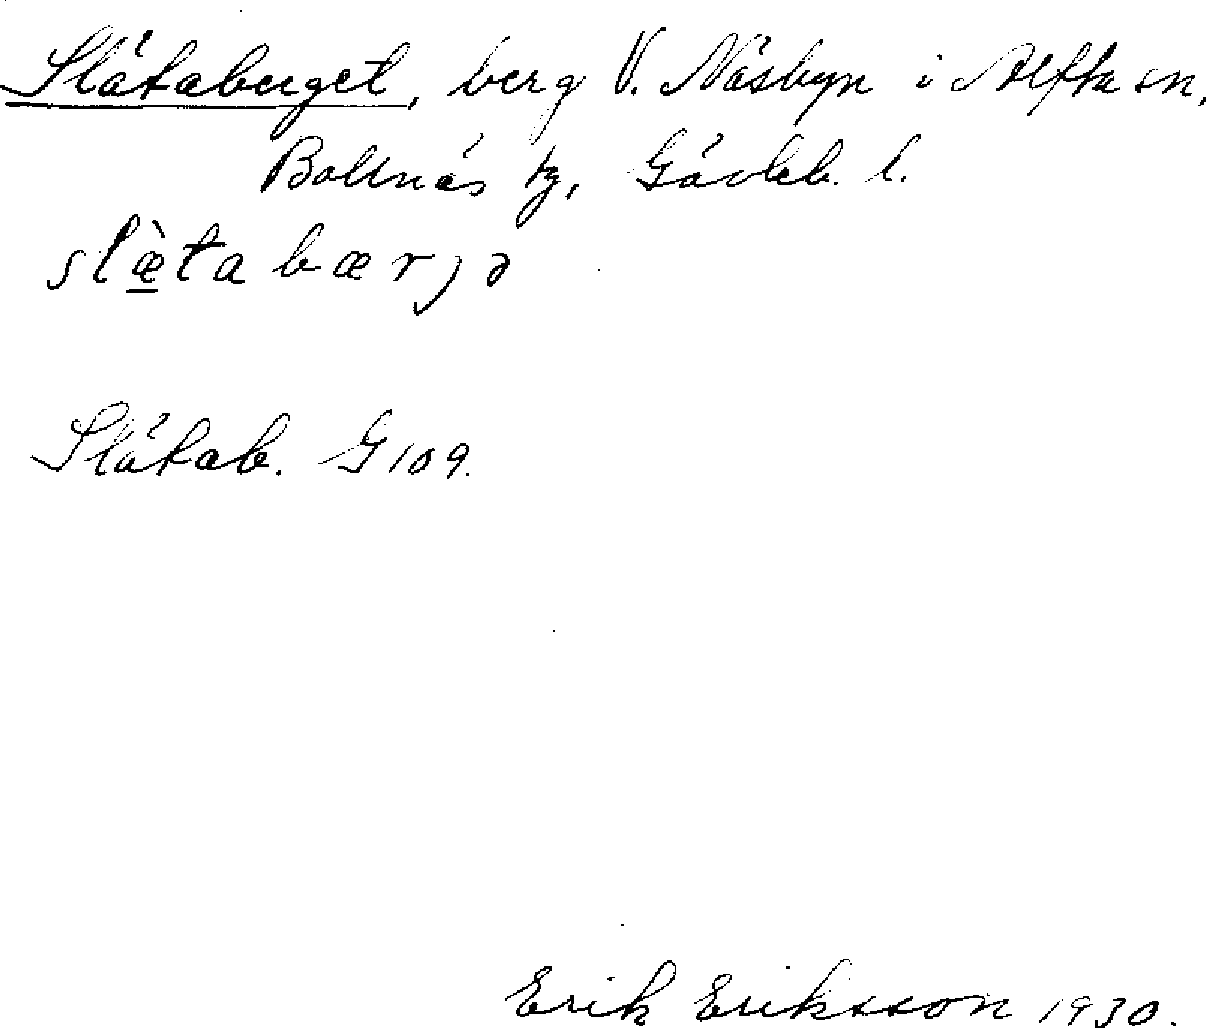 Slätaberget, berg V. Näsbyn i Alfta sn,
Bollnäs tg, Gävleb. l.
slæ̀tabærjə
Slätab. G 109.
Erik Eriksson 1930.